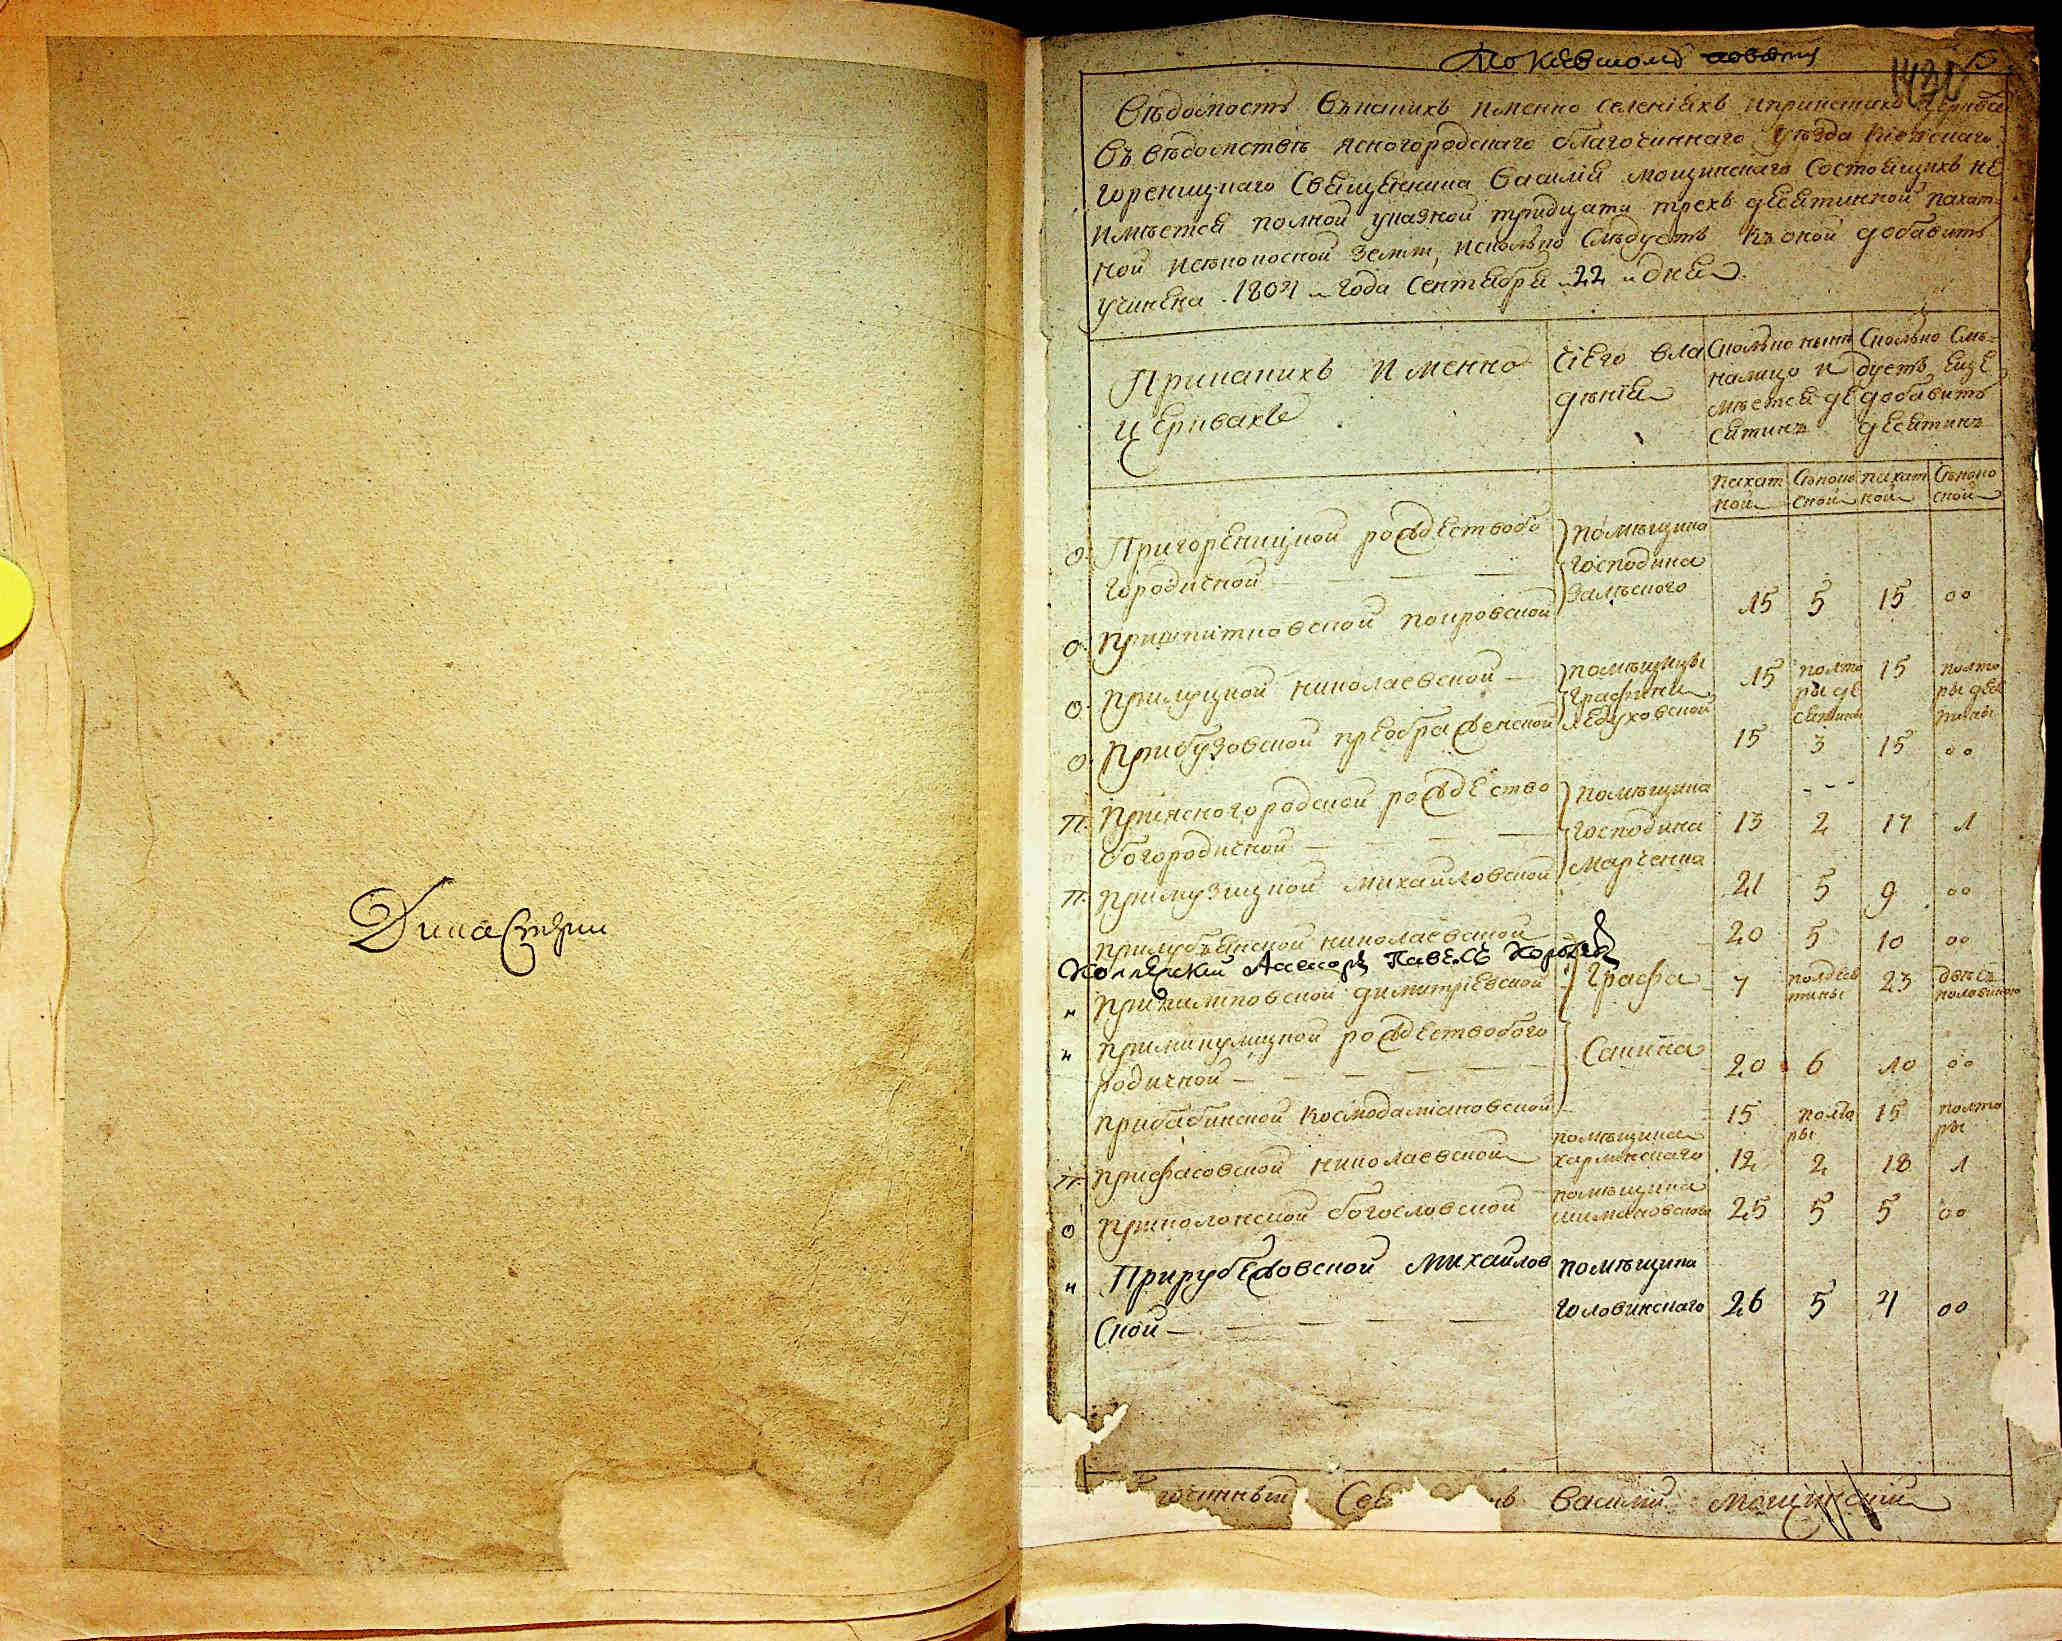 Дикастерии
По Киевскому повету
Вѣдомость Въкакихъ Именно селениехъ ипринстихъ церква
Въ вѣдомствѣ Ясногородскаго благочиннаго уѣзда Киевскаго
гореницкаго Священника Василия Мощинскаго Состоящихъ не
имѣется полной указной тридцати трехъ десятинной пахат-
ной исѣнокосной земли, исколько Слѣдуетъ Къ оной добавить
учинена 1804 года Сентября 22 дня
Прикакихъ Именно
церквахъ
Сiего вла
дѣнiя
Сколько нынѣ
налицо и
мѣется де
сятинъ
Сколько Слѣ-
дуетъ еще
добавить
десятинъ
пахат
ной
Сѣноко
сной
пахат
ной
Сѣноко
сной
о Пригореницкой рождествобо
городичной
помѣщика
господина
Залѣского
15 5 15 00
о Пришпитковской покровской
о Прилуцкой николаевской
помѣщицы
графини
Ледуховской
15 полто
ры де
сятины
15 полто
ры деся
тины
о Прибузовской преображенской 15 3 15 00
п. Приясногородской рождество
богородичной
помѣщика
господина
Марченка
13 2 17 1
п. Примузицкой михайловской 21 5 9 00
николаевской 20 5 10 00
Коллежский Асессоръ Павелъ
димитриевской Графа 7 полдеся
тины
23 двѣ съ
половиною
Приминулицкой рождествобого
родичной
20 6 10 00
Прибабинской космодамiановской 15 полто
ры
15 полто
ры
п. Прифасовской николаевской помѣщика
12 2 18 1
о Приколонской богословской помѣщика
25 5 5 00
н Прирубежовской михайлов
ской
помѣщика
головинскаго
26 5 4 00
гочинный Василий Мощинский